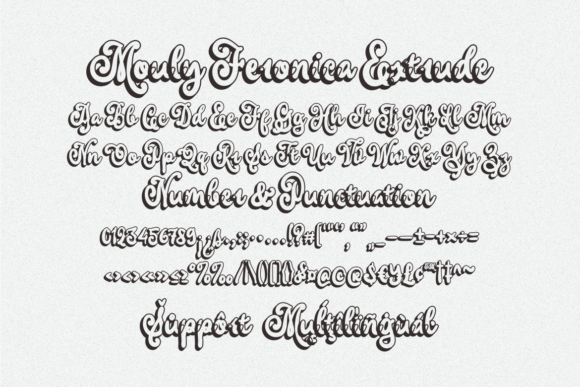 Mouly Feronica Extrude
Aa Bb Cc Dd Ee Ff Gg Hh Ii Jj Kk Ll Mm
Nn Oo Pp Qq Rr Ss Tt Uu Vv Ww Xx Yy Zz
Number & Punctuation
0123456789
Support Multilingual